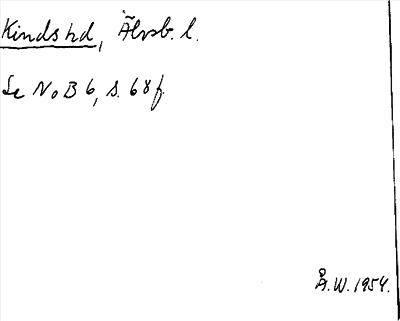 Kinds hd, Älvsb. l.
Se NoB 6, s. 68 f.
Å.W. 1954.